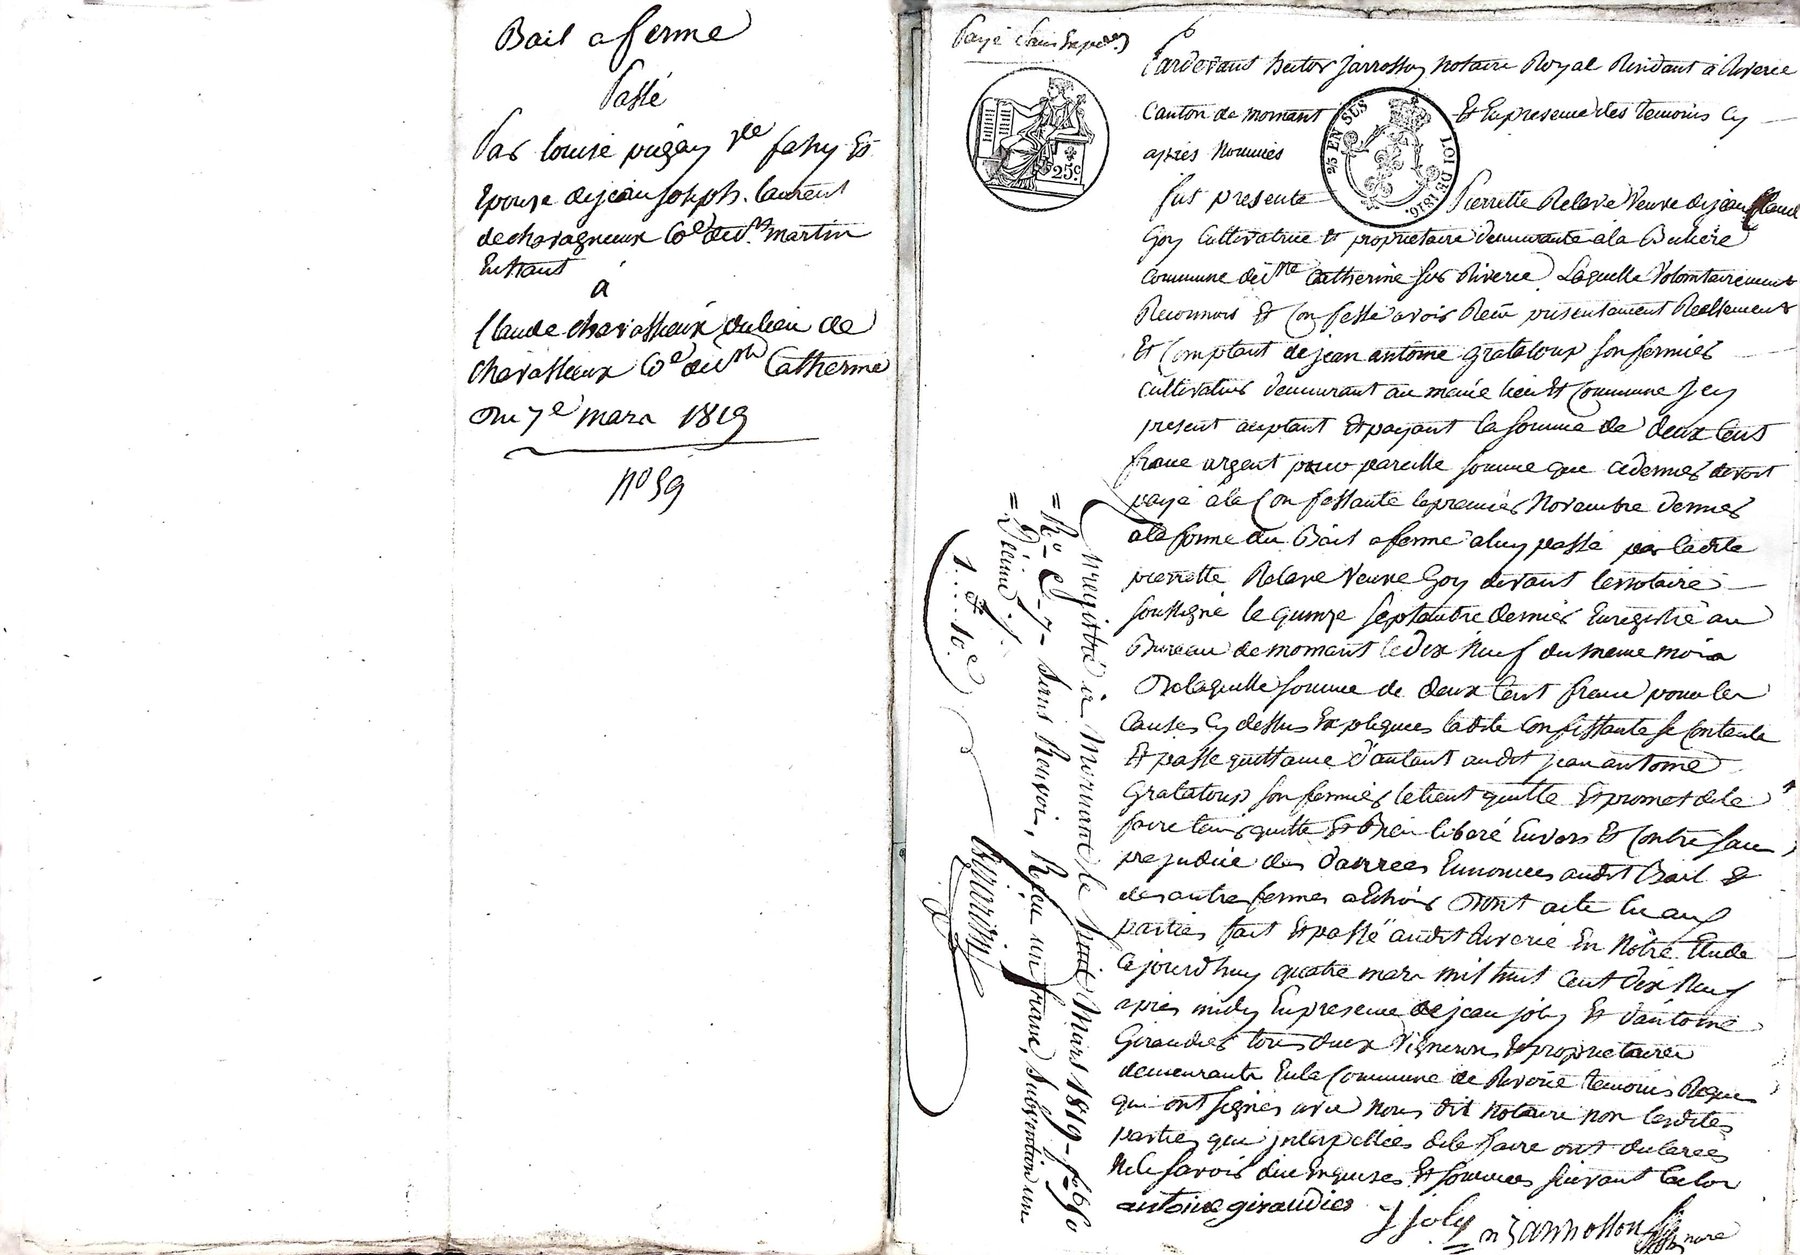 Bail a ferme
Passé
Par louise pugay Ve fahy Et
Epouse de jean joseph laurent
de chavagneux Cne de st martin
En haut
à
Claude chavassieux du lieu de
chavassieux Cne de ste Catherine
Du 7e mars 1819
no 59
Payé
Pardevant hector jarrosson notaire Royal Résidant à Riverie
Canton de mornant Et En presence des temoins Cy
après Nommés
25c
25 EN SUS
LOI DE 1816.
fut presente Pierrette Relave Veuve de jean Claude
Goy Cultivatrice Et proprietaire demeurante à la
Commune de ste Catherine sur Riverie Laquelle Volontairement
Reconnois Et Confesse avoir Reçu présentement Réellement
Et Comptant de jean antoine grataloup son fermier
cultivateur demeurant au meme lieu Et Commune Jcy
present acceptant Et payant la somme de deux Cent
franc argent pour pareille somme que ce dernier devoit
payé à la Confessante le premier Novembre dernier
a la forme du Bail a ferme a luy passé par ladite
pierrette Relave Veuve Goy devant le notaire
soussigné le quinze septembre dernier Enregistré au
Bureau de mornant le dix Neuf du meme mois
De laquelle somme de deux Cent franc pour les
Causes Cy dessus Expliquees ladite Confessante se Contente
Et passe quittance d'autant audit jean antoine
Grataloup son fermier le tient quitte Et promet de le
faire tenir quitte Et Bien liberé Envers Et Contre sans
prejudice des danrees Ennoncees audit Bail &
des autre fermes a Echoir Dont acte lu aux
parties fait Et passé audit Riverie En Nôtre Etude
Cejourdhuy quatre mars mil huit Cent Dix Neuf
après midy En presence de jean joly Et d'antoine
Giraudier tous deux Vignerons Et proprietaires
demeurants En la Commune de Riverie temoins Requis
qui ont signés avec Nous dit Notaire non lesdites
parties qui jnterpellées de le faire ont declarées
Ne le savoir de ce Enquises Et sommées suivant la loi
antoine giraudier J Joly Jarrosson
Enregistré à Mornant le huit Mars 1819
Ro C. 7 sans Renvoi, Reçu un franc, subvention un
Décime
1 f 10 c